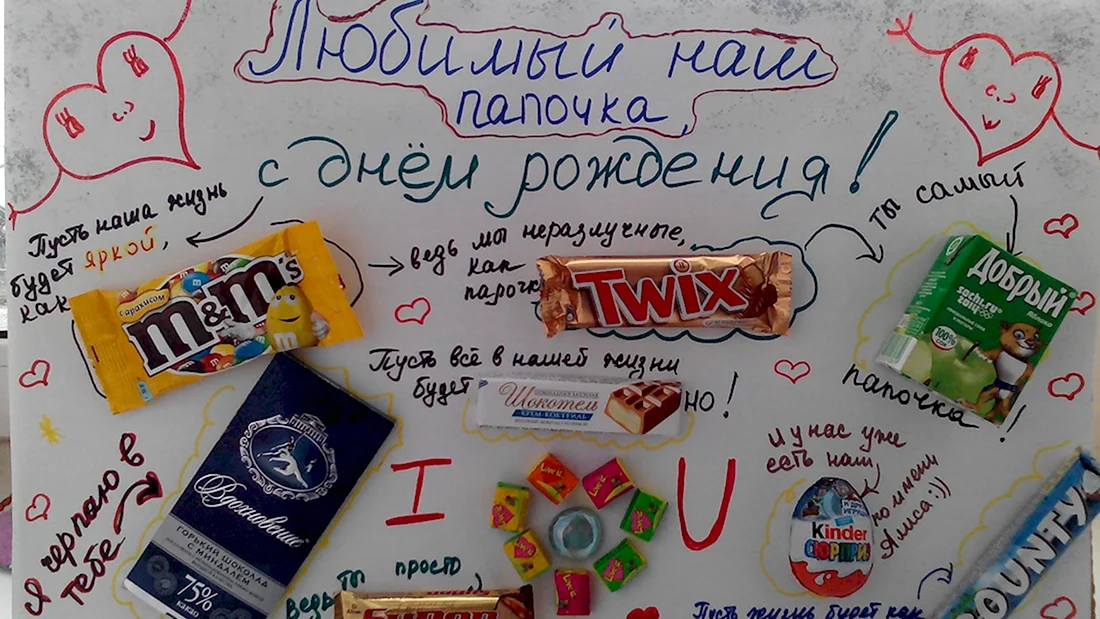 Любимый наш
папочка,
с днём рождения!
Пусть наша жизнь
будет яркой,
как
с арахисом
m&m's
ведь мы неразлучные,
как
парочка
TWIX
ты самый
Добрый
sochi.ru
2014
яблоко
100%
папочка!
Пусть всё в нашей жизни
будет
Шокотель
КРЕМ-КОКТЕЙЛЬ
но!
Я черпаю в
тебе
Вдохновение
ГОРЬКИЙ ШОКОЛАД
С МИНДАЛЕМ
75%
какао
I
LOVE IS
U
И у нас уже
есть наш
по имени
Алиса:))
Kinder
СЮРПРИЗ
ведь
ты просто
Пусть жизнь будет как
BOUNTY